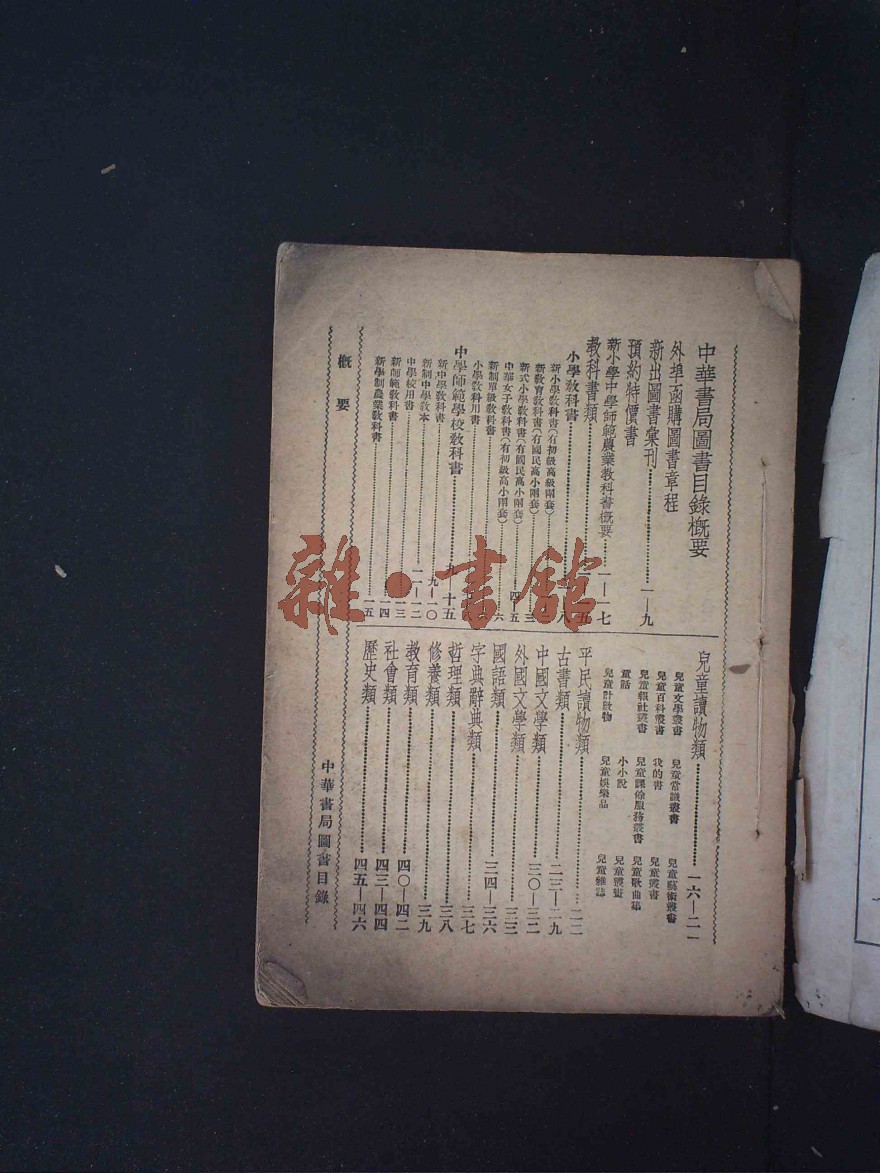 中華書局圖書目錄概要
外埠函購圖書章程
新出圖書彙刊 一—九
預約特價書
新小學中學師範農業教科書概要 一—一七
教科書類
小學教科書 八
新小學教科書(有初級高級兩套)
新教育教科書(有國民高小兩套) 三
新式小學教科書(有國民高小兩套) 四—五
中華女子教科書(有初級高小兩套)
新制單級教科書 六
小學教科用書
中學師範學校教科書 九—十五
新中學教科書 九—一〇
新制中學教本
中學校用書 一一—一二
新師範教科書 一三
新學制農業教科書 一五
兒童讀物類 一六—二一
兒童文學叢書 兒童常識叢書 兒童藝術叢書
兒童百科叢書 我的書 兒童叢書
兒童報社叢書 兒童課餘服務叢書 兒童歌曲集
童話 小小說 兒童叢畫
兒童計啟物 兒童娛樂品 兒童雜誌
平民讀物類 二二
古書類 二三—二九
中國文學類 三〇—三二
外國文學類 三三
國語類 三四—三六
字典辭典類 三七
哲理類 三八
修養類 三九
教育類 四〇—四二
社會類 四三—四四
歷史類 四五—四六
概要
中華書局圖書目錄
雜·書館